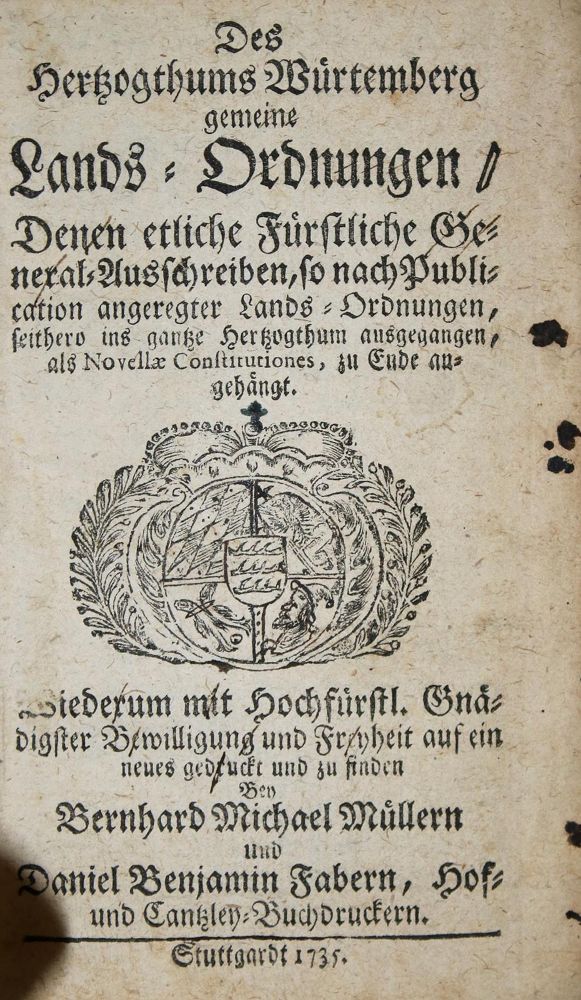 Des
Hertzogthums Würtemberg
gemeine
Lands-Ordnungen /
Denen etliche Fürstliche Ge-
neral-Ausschreiben, so nach Publi-
cation angeregter Lands-Ordnungen,
seithero ins gantze Hertzogthum ausgegangen,
als Novellæ Constitutiones, zu Ende an-
gehängt.
Wiederum mit Hochfürstl. Gnä-
digster Bewilligung und Freyheit auf ein
neues gedruckt und zu finden
Bey
Bernhard Michael Müllern
und
Daniel Benjamin Fabern, Hof-
und Cantzley-Buchdruckern.
Stuttgardt 1735.